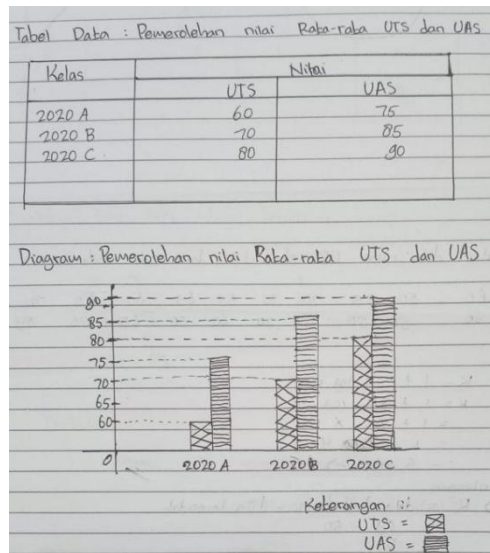 Tabel Data : Pemerolehan nilai Rata-rata UTS dan UAS
Kelas Nilai
UTS UAS
2020 A 60 75
2020 B 70 85
2020 C 80 90
Diagram : Pemerolehan nilai Rata-rata UTS dan UAS
90
85
80
75
70
65
60
0 2020 A 2020 B 2020 C
Keterangan :
UTS =
UAS =